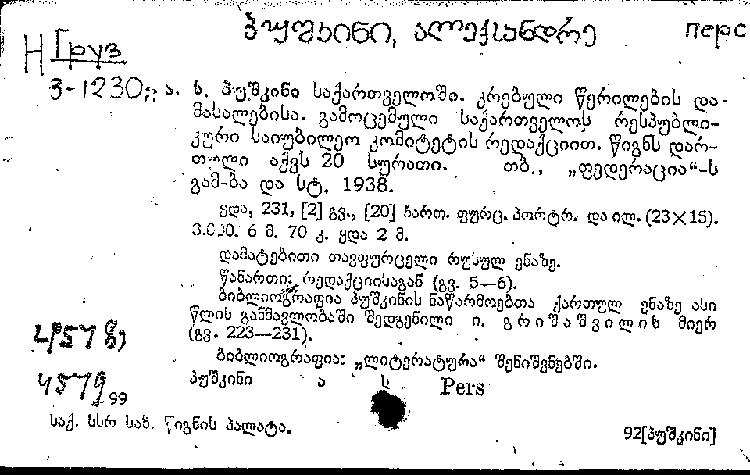 პუშკინი, ალექსანდრე
перс
Н Груз
3-1230
ა. ს. პუშკინი საქართველოში. კრებული წერილების და
მასალებისა. გამოცემული საქართველოს რესპუბლი-
კური საიუბილეო კომიტეტის რედაქციით. წიგნს დარ-
თული აქვს 20 სურათი. თბ., „ფედერაცია“-ს
გამ-ბა და სტ. 1938.
ყდა, 231, [2] გვ., [20] ჩართ. ფურც. პორტრ. და ილ. (23×15).
3.000. 6 მ. 70 კ. ყდა 2 მ.
დამატებითი თავფურცელი რუსულ ენაზე.
წანართი: რედაქციისაგან (გვ. 5—6).
ბიბლიოგრაფია პუშკინის ნაწარმოებთა ქართულ ენაზე ასი
წლის განმავლობაში შედგენილი ი. გრიშაშვილის მიერ
(გვ. 223—231).
ბიბლიოგრაფია: „ლიტერატურა“ შენიშვნებში.
პუშკინი ა ს Pers
4579 99
საქ. სსრ სახ. წიგნის პალატა.
92[პუშკინი]